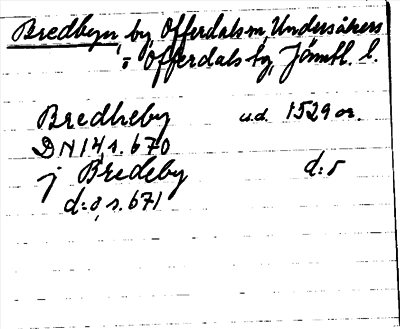 Bredbyn, by, Offerdals sn, Undersåkers
= Offerdals tg, Jämtl. l.
Bredheby u.d. 1529 or.
DN 14, s. 670
j Bredeby d:o
d:o, s. 671